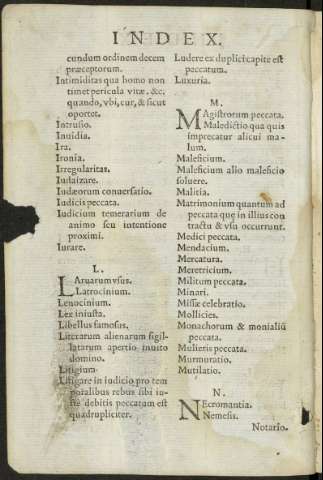 INDEX.
cundum ordinem decem
præceptorum.
Intimiditas qua homo non
timet pericula vitæ. &c.
quando, vbi, cur, & sicut
oportet.
Intrusio.
Inuidia.
Ira.
Ironia.
Irregularitas.
Iudaizare.
Iudæorum conuersatio.
Iudicis peccata.
Iudicium temerarium de
animo seu intentione
proximi.
Iurare.
L.
LAruarum vsus.
Latrocinium.
Lenocinium.
Lex iniusta.
Libellus famosus.
Literarum alienarum sigil-
latarum apertio inuito
domino.
Litigium.
Litigare in iudicio pro tem
poralibus rebus sibi iu-
stè debitis peccatum est
quadrupliciter.
Ludere ex duplici capite est
peccatum.
Luxuria.
M.
MAgistrorum peccata.
Maledictio qua quis
imprecatur alicui ma-
lum.
Maleficium.
Maleficium alio maleficio
soluere.
Malitia.
Matrimonium quantum ad
peccata quę in illius con
tractu & vsu occurrunt.
Medici peccata.
Mendacium.
Mercatura.
Meretricium.
Militum peccata.
Minari.
Missæ celebratio.
Mollicies.
Monachorum & monialiū
peccata.
Mulieris peccata.
Murmuratio.
Mutilatio.
N.
NEcromantia.
Nemesis.
Notario.